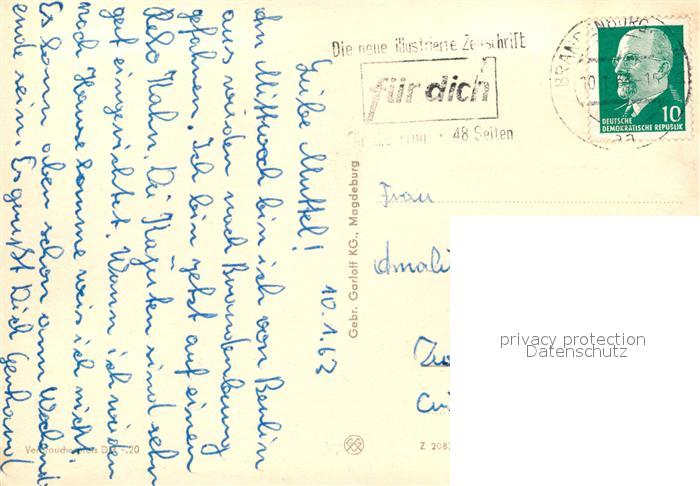 Die neue illustrierte Zeitschrift
für dich
48 Seiten
BRANDENBURG
10
DEUTSCHE
DEMOKRATISCHE REPUBLIK
10.1.63
Liebe Mutti!
Am Mittwoch bin ich von Berlin
aus wieder nach Brandenburg
gefahren. Ich bin jetzt auf einen
Reko Kahn. Die Kajüten sind sehr
gut eingerichtet. Wann ich wieder
nach Hause komme weis ich nicht.
Es kann aber schon am Wochend-
ende sein. Es grüßt Dich Gerhard
Frau
Amali
Gebr. Garloff KG., Magdeburg
Verbraucherpreis DM -.20
Z 208
privacy protection
Datenschutz